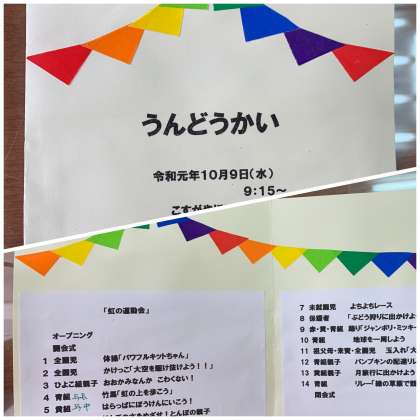 うんどうかい
令和元年10月9日(水)
9:15～
「虹の運動会」
オープニング
開会式
1 全園児 体操「パワフルキットちゃん」
2 全園児 かけっこ「大空を駆け抜けよう！！」
3 ひよこ組親子 おおかみなんか こわくない！
4 青組 竹馬「虹の上を歩こう」
5 黄組 はらっぱにぼうけんにいこう！
7 未就園児 よちよちレース
8 保護者 「ぶどう狩りに出かけよ
9 赤・黄・青組 踊り「ジャンボリ・ミッキー
10 青組 地球を一周しよう
11 祖父母・来賓・全園児 玉入れ「大
12 青組親子 パンプキンの配達リレ
13 黄組親子 月旅行に出かけよう
14 青組 リレー「緑の草原で競
閉会式